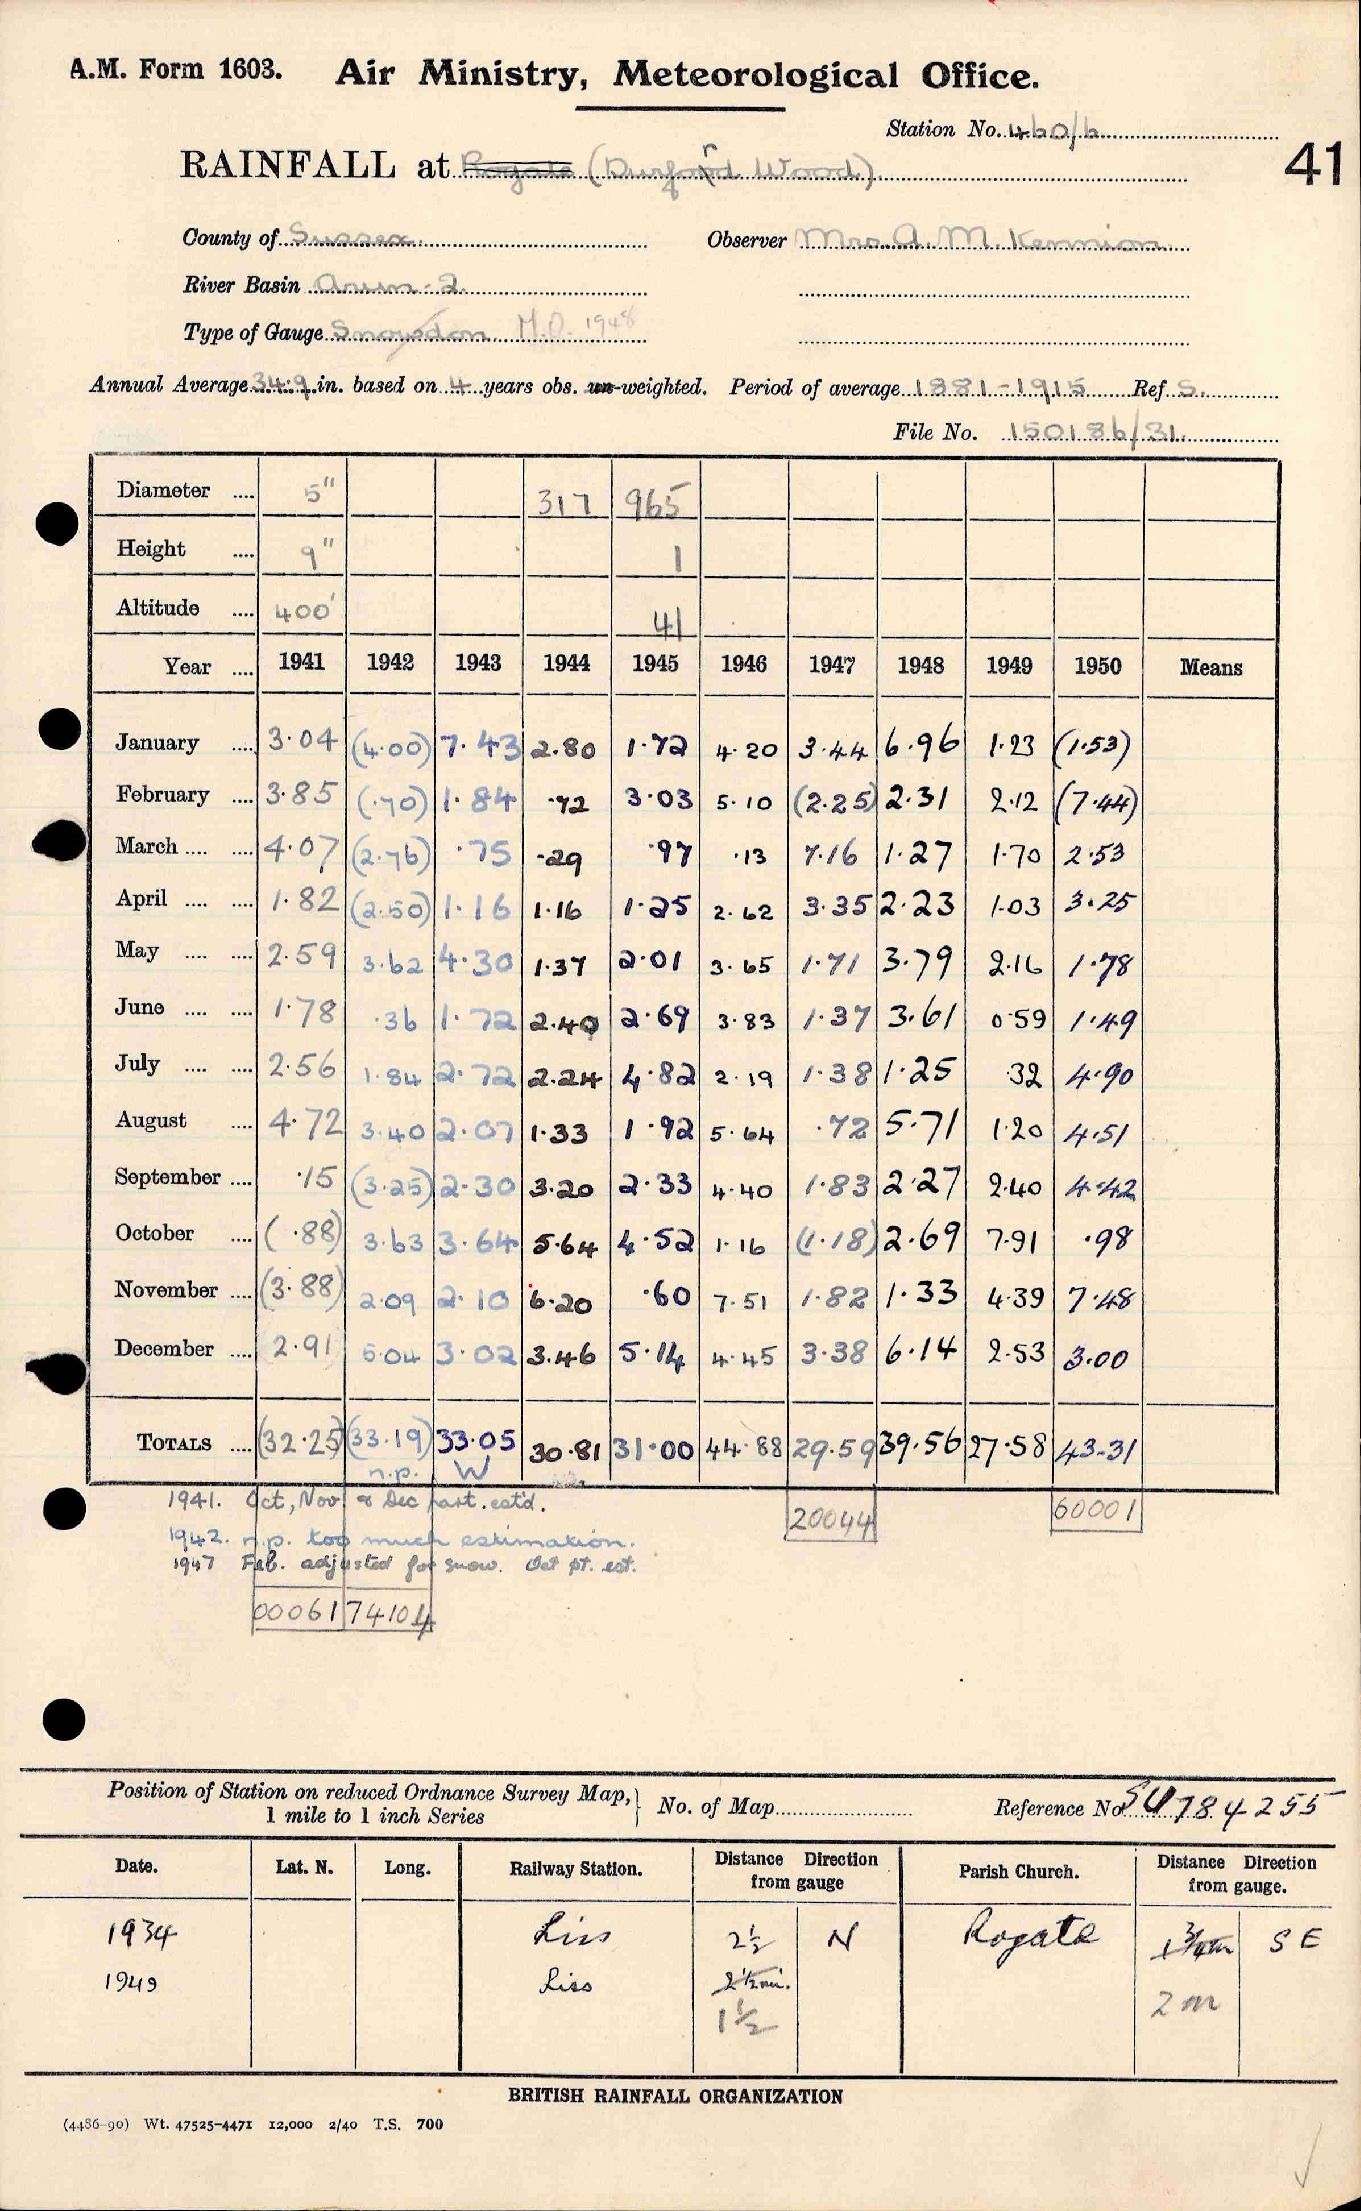 A.M. Form 1603. Air Ministry, Meteorological Office.
Station No. 460/6
41
RAINFALL at Rogate (Durford Wood)
County of Sussex. Observer Mrs. A. M. Kennion
River Basin Arun - 2.
Type of Gauge Snowdon M.O. 1948
Annual Average 34.9 in. based on 4 years obs. un-weighted. Period of average 1881-1915 Ref S.
File No. 150186/31.
Diameter .... 5" 317 965
Height .... 9" 1
Altitude .... 400' 41
Year .... 1941 1942 1943 1944 1945 1946 1947 1948 1949 1950 Means
January .... 3.04 (4.00) 7.43 2.80 1.72 4.20 3.44 6.96 1.23 (1.53)
February .... 3.85 (.70) 1.84 .72 3.03 5.10 (2.25) 2.31 2.12 (7.44)
March .... .... 4.07 (2.76) .75 .29 .97 .13 7.16 1.27 1.70 2.53
April .... .... 1.82 (2.50) 1.16 1.16 1.25 2.62 3.35 2.23 1.03 3.25
May .... .... 2.59 3.62 4.30 1.37 2.01 3.65 1.71 3.79 2.16 1.78
June .... .... 1.78 .36 1.72 2.40 2.69 3.83 1.37 3.61 0.59 1.49
July .... .... 2.56 1.84 2.72 2.24 4.82 2.19 1.38 1.25 .32 4.90
August .... 4.72 3.40 2.07 1.33 1.92 5.64 .72 5.71 1.20 4.51
September .... .15 (3.25) 2.30 3.20 2.33 4.40 1.83 2.27 2.40 4.42
October .... (.88) 3.63 3.64 5.64 4.52 1.16 (1.18) 2.69 7.91 .98
November .... (3.88) 2.09 2.10 6.20 .60 7.51 1.82 1.33 4.39 7.48
December .... 2.91 5.04 3.02 3.46 5.14 4.45 3.38 6.14 2.53 3.00
TOTALS .... (32.25) (33.19) 33.05 30.81 31.00 44.88 29.59 39.56 27.58 43.31
n.p. W
1941. Oct, Nov & Dec part. estd.
20044 60001
1942. n.p. too much estimation.
1947 Feb. adjusted for snow. Oct pt. est.
00061 74104
Position of Station on reduced Ordnance Survey Map, 1 mile to 1 inch Series
No. of Map Reference No SU 784255
Date. Lat. N. Long. Railway Station. Distance Direction from gauge Parish Church. Distance Direction from gauge.
1934 Liss 2½ N Rogate 1¾m SE
1949 Liss 2½mi.
1½ 2m
BRITISH RAINFALL ORGANIZATION
(4486-90) Wt. 47525-4471 12,000 2/40 T.S. 700